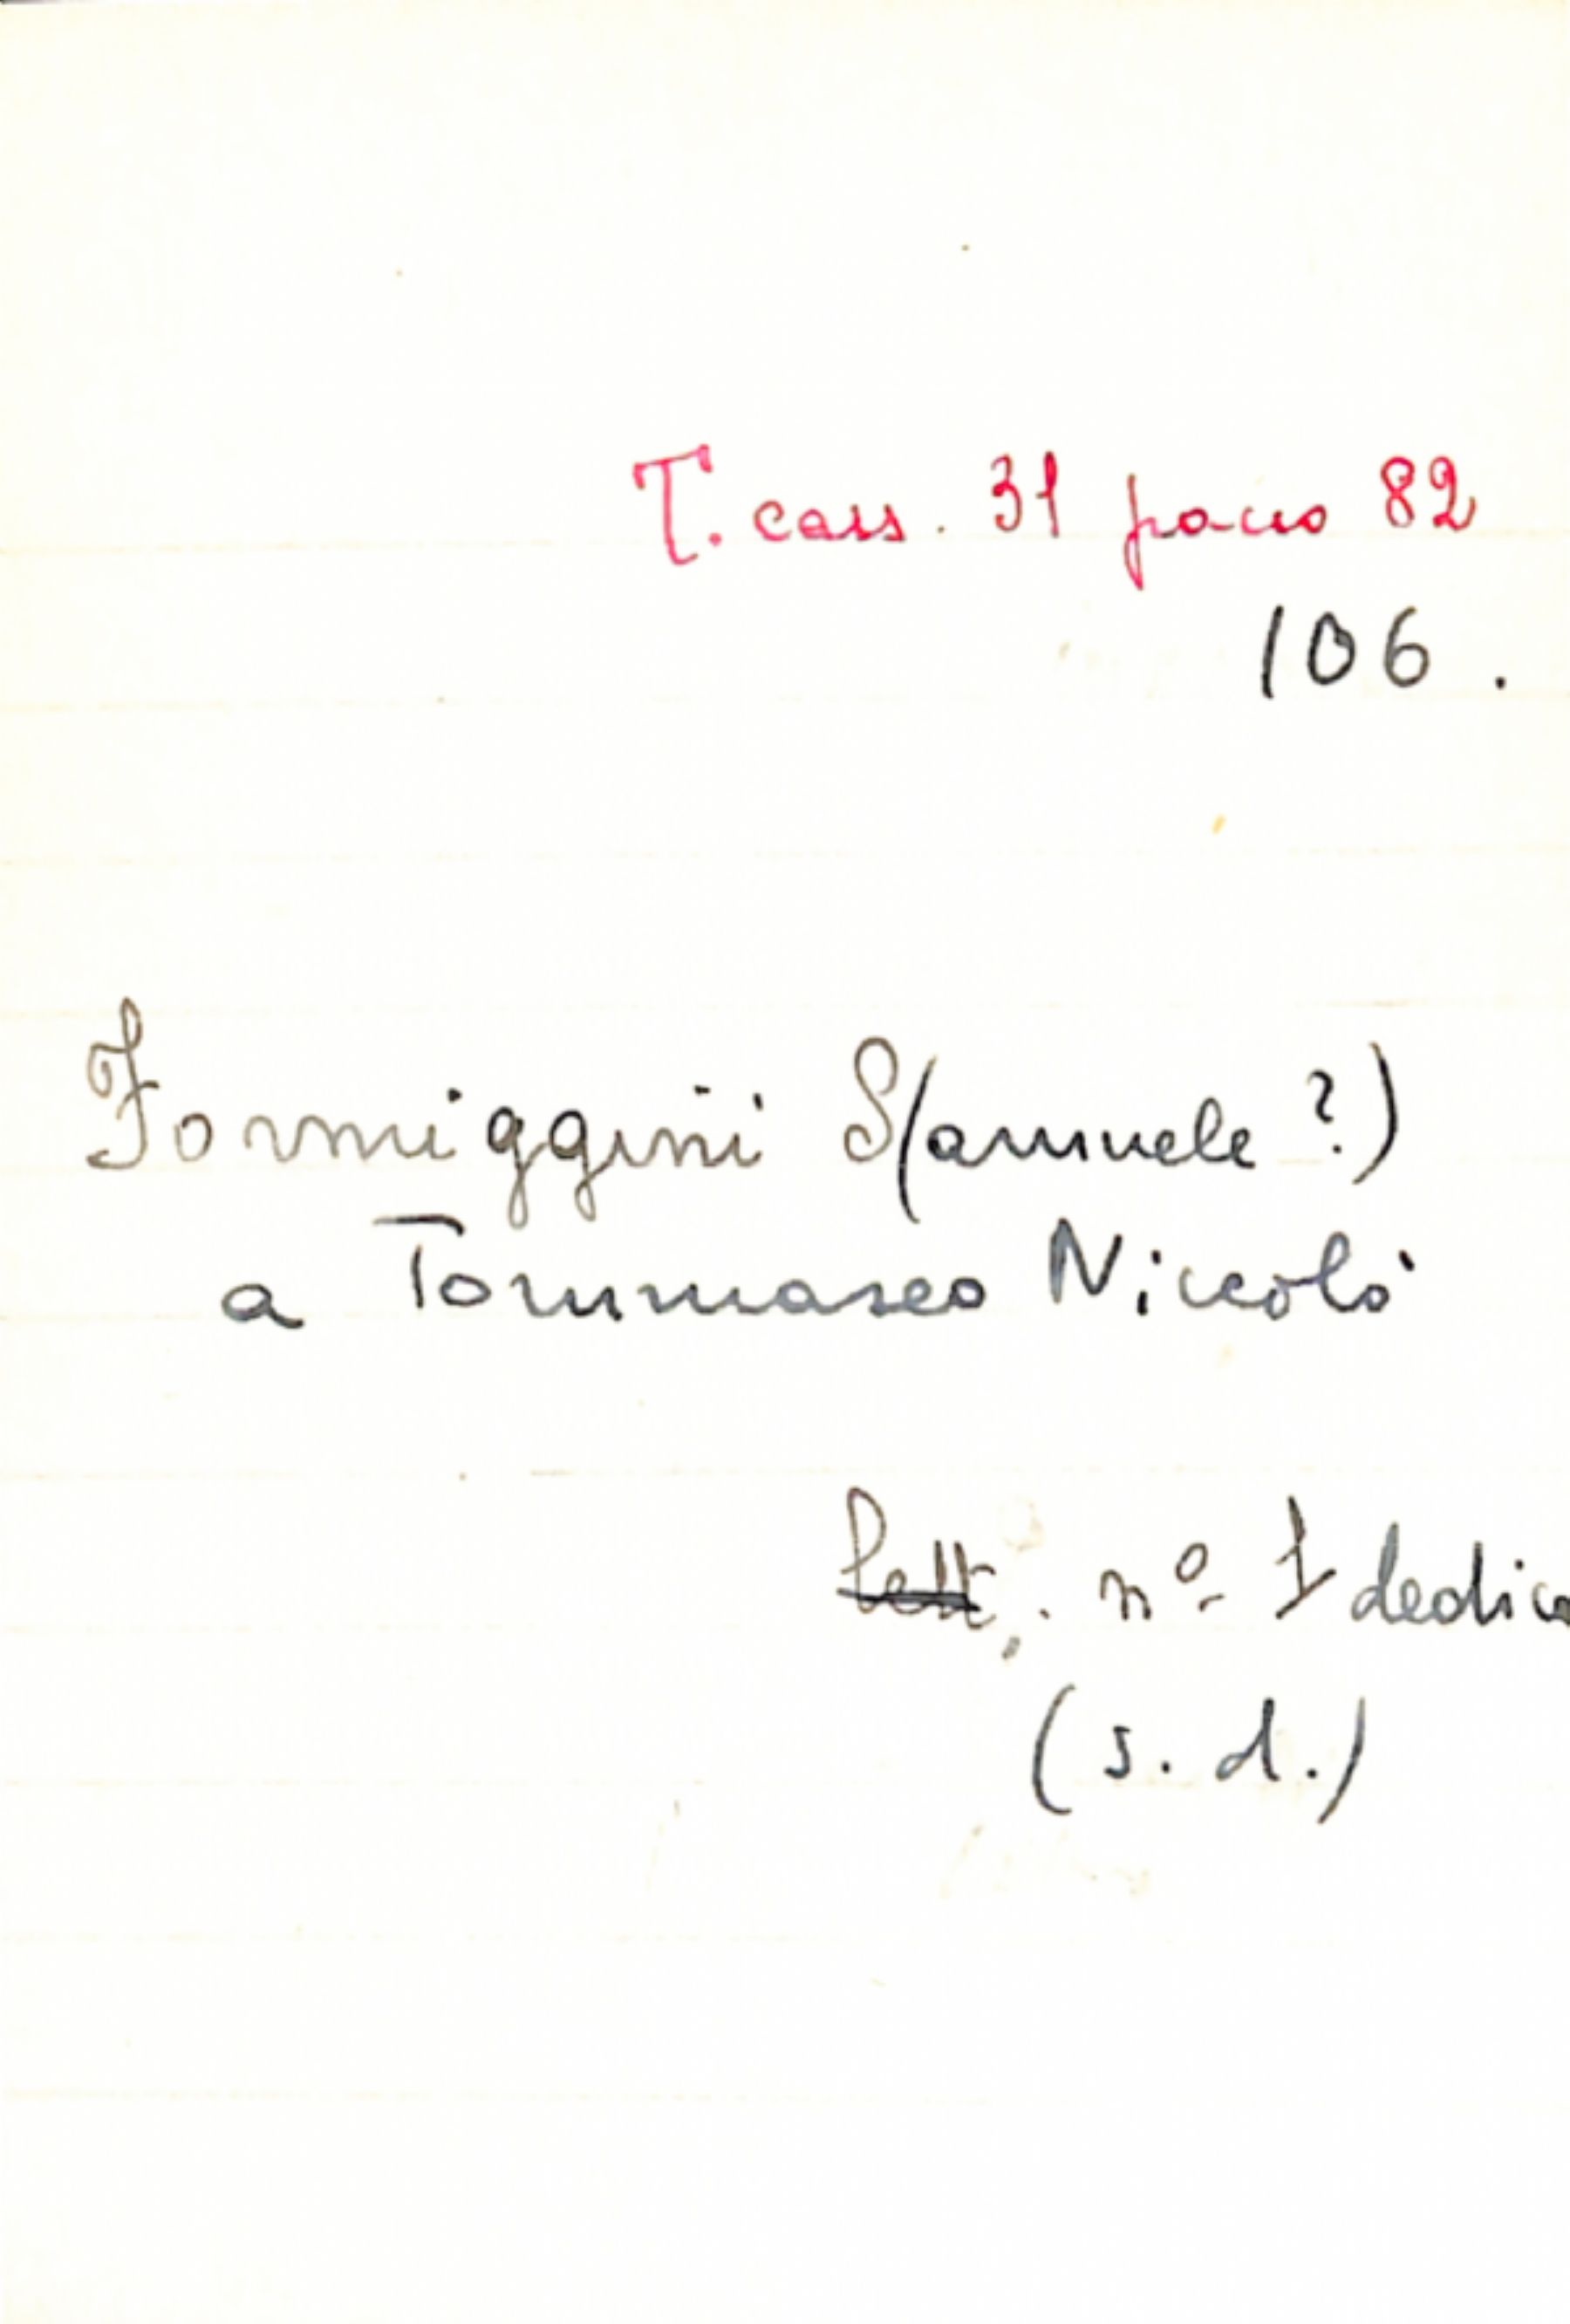 T. cass. 31 pacco 82
106.
Formiggini S(amuele?)
a Tommaseo Niccolò
Lett. n° 1 dedica
(s. d.)